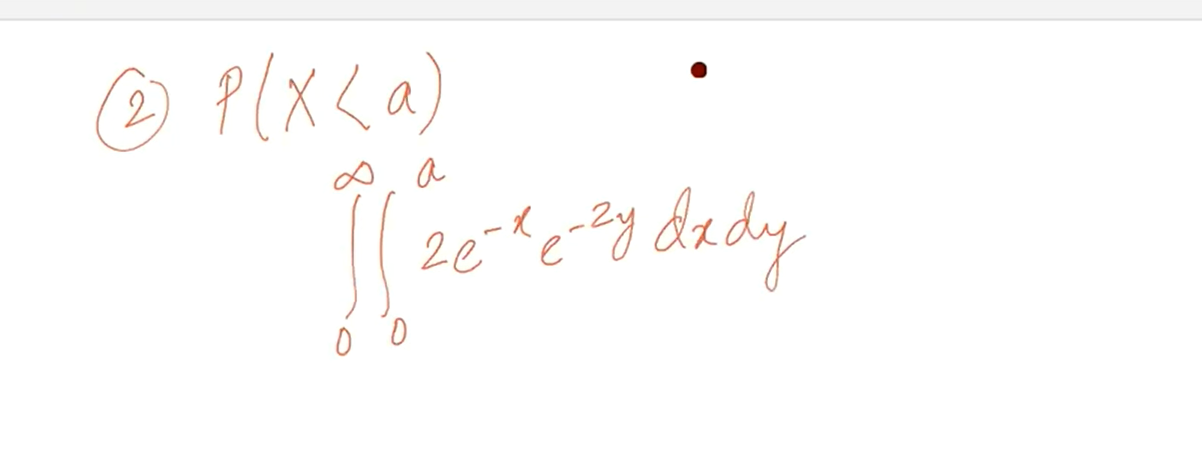 ② P(X < a)
∫₀^∞ ∫₀^a 2e^{-x} e^{-2y} dx dy